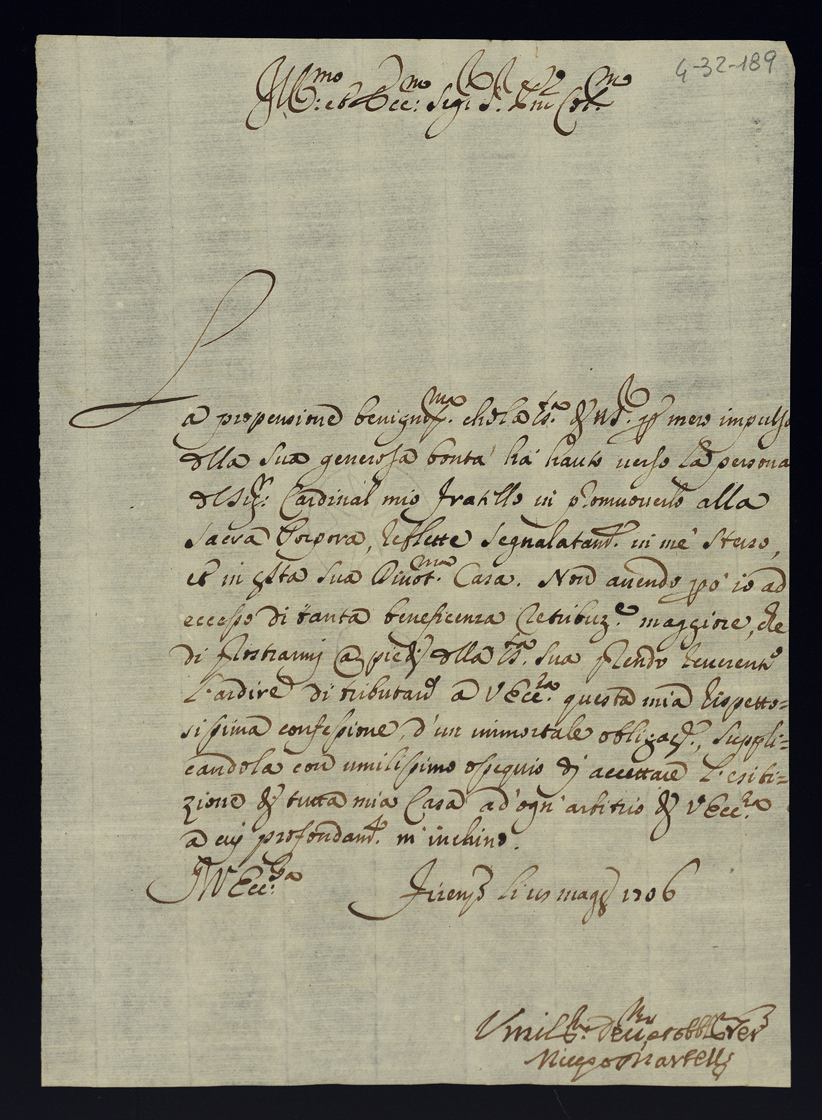 4-32-189
Ill.mo et Ecc.mo Sig.r Sig.r P.ron Col.mo
La propensione benignis.ma che la S.tà di N.S. p mero impulso
della sua generosa bontà ha hauto verso la persona
del Sig.r Cardinal mio fratello in promuoverlo alla
Sacra Porpora, reflette segnalatam.te in me stesso,
et in q.sta sua Divot.ma Casa. Non avendo però io ad
eccesso di tanta beneficenza retribuz.e maggiore, che
di prostrarmi a piedi della S.tà sua prendo reverente
l'ardire di tributare a V Ecc.za questa mia rispetto=
sissima confessione, d'un immortale obligaz.e, suppli=
candola con umilissimo ossequio di accettare l'esibi=
zione di tutta mia Casa ad ogni arbitrio di V Ecc.za
a cui profondam.te m'inchino.
Di V Ecc.za Firenze li maggio 1706
Umil.mo Dev.mo et obb.mo Ser.e
Niccolò Martelli